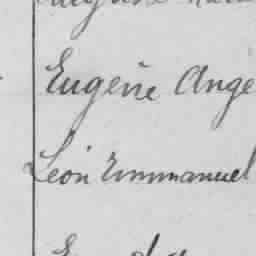 Eugène Ange
Léon Emmanuel